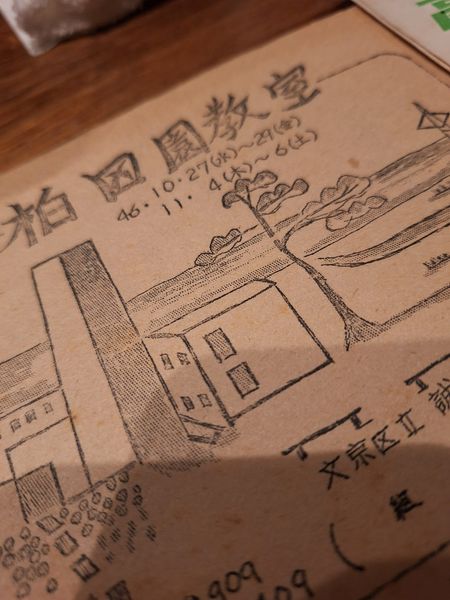 柏田園教室
46・10・27(水)～29(金)
11・4(木)～6(土)
文京区立
組
909
09